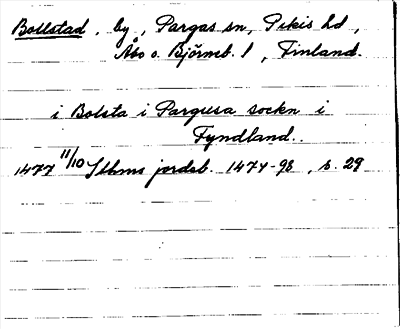 Bollstad, by, Pargas sn, Pikis hd,
Åbo o. Björneb. l, Finland.
i Bolsta i Pargusa sockn i
Fyndland.
1477 11/10 Sthms jordeb. 1474-98, s. 29